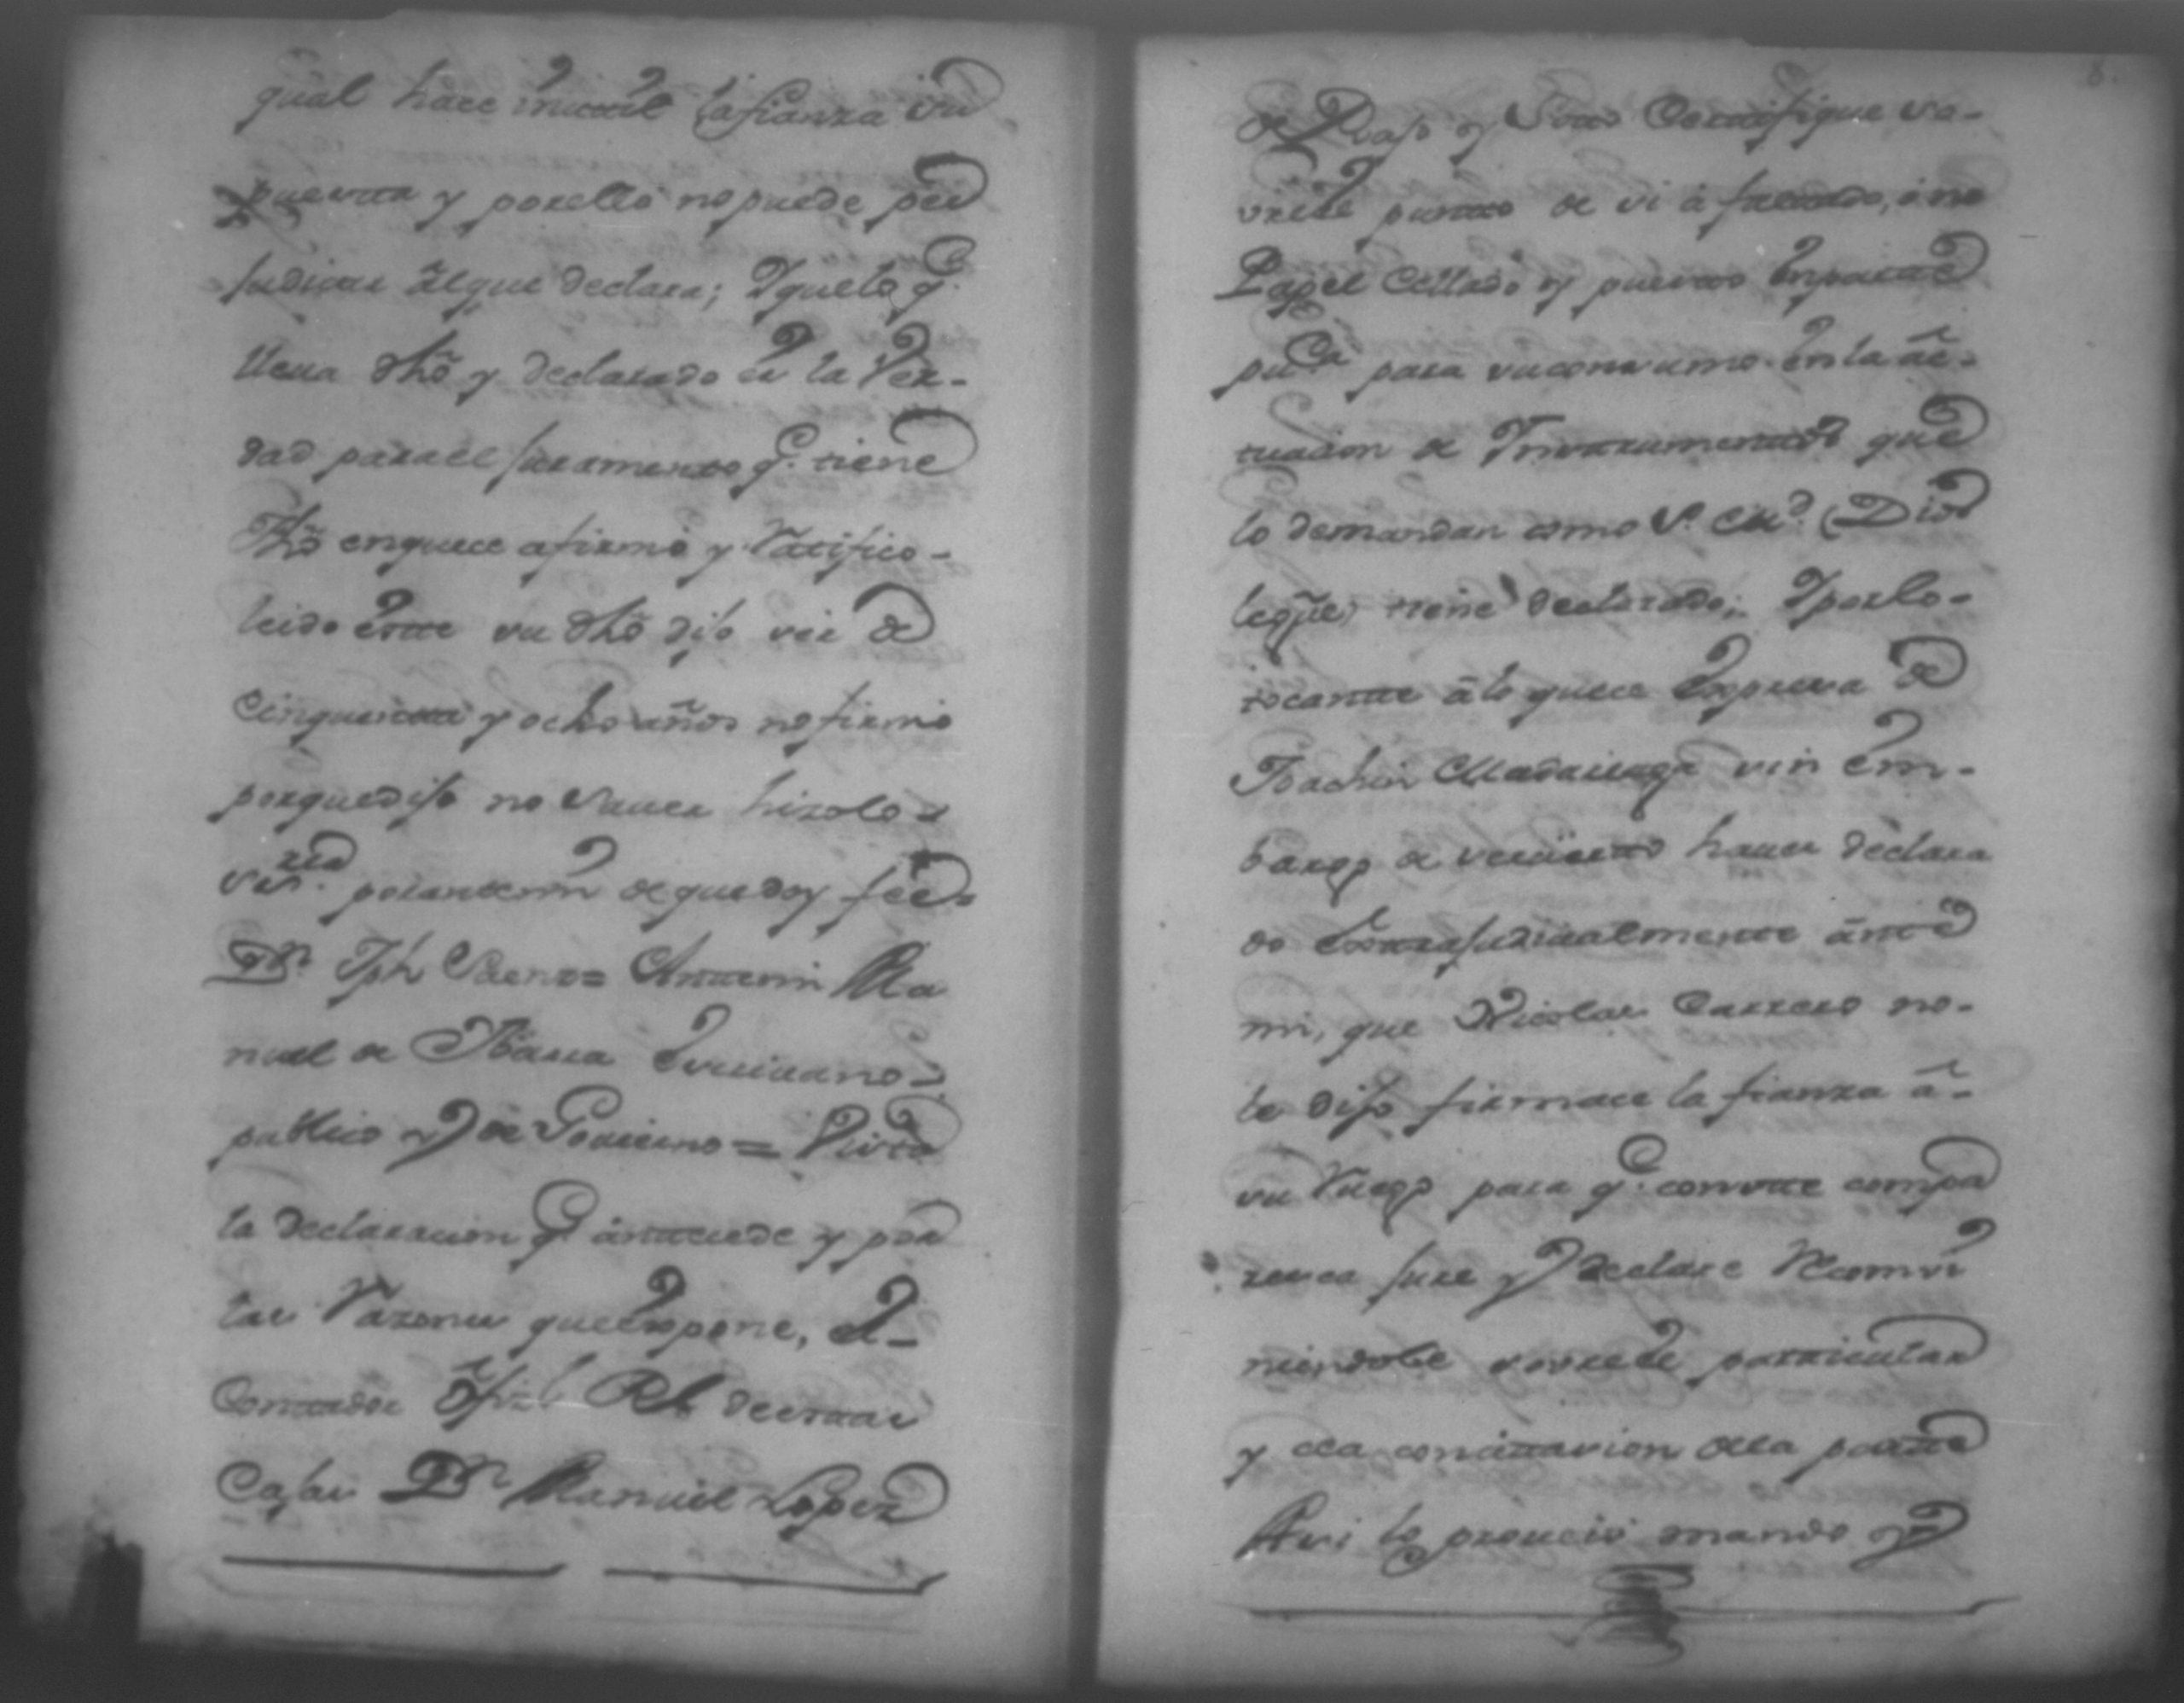 qual hace inutil la fianza su
puesta y por ello no puede per
judicar al que declara; Yque lo q.
lleua dhõ y declarado es la Ver-
dad para el juramento q. tiene
fhõ enquese afirmó y Ratifico-
leido este su dhõ dijo ser de
Cinquenta y ocho años no firmó
porquedijo no Sauer hizolo-
por antemi de que doy feé=
Dn. Jph Saenz= Antemi Ma
nuel de Ibarra Escriuano-
publico y de Gouierno= Vista
la declaracion q. antecede y por
las Razones que expone, el-
Contador Ofizl Rl. de estas
Cajas Dn. Manuel Lopez
8.
puntto de si á faltado, ó no
Papel Cellado y puesto en parte
pu.ca para su consumo en la ac-
tuacion de Instrumentos que
lo demandan como S. M.d (Dios
legũe) tiene declarado; Yporlo-
tocante á lo que se expresa de
Joachin Madariaga sin em-
bargo de hauer declara
do extrajudicialmente ante
mi, que Nicolas Carrero no-
le dijo firmase la fianza á-
su Ruego para q. conste compa
resca jure y declare Recomvi
niendole sobre este particular
y con citasion de la parte
Asi lo proueió mandó y